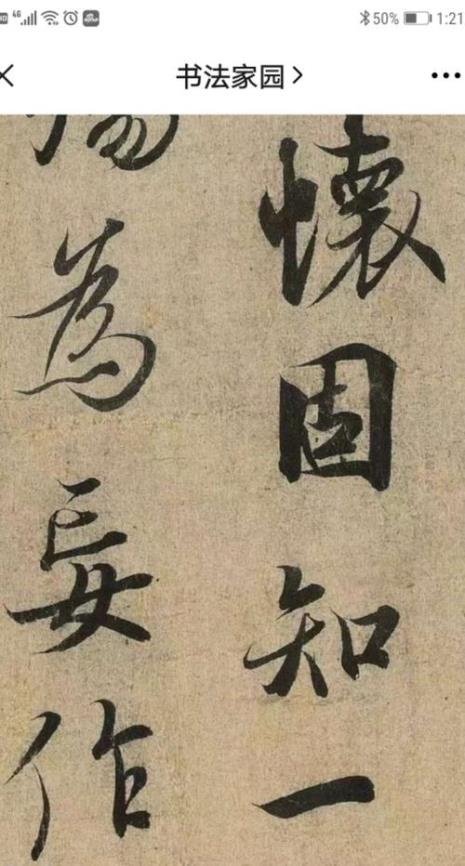 50% 1:21
书法家园
懷固知一
為妄作